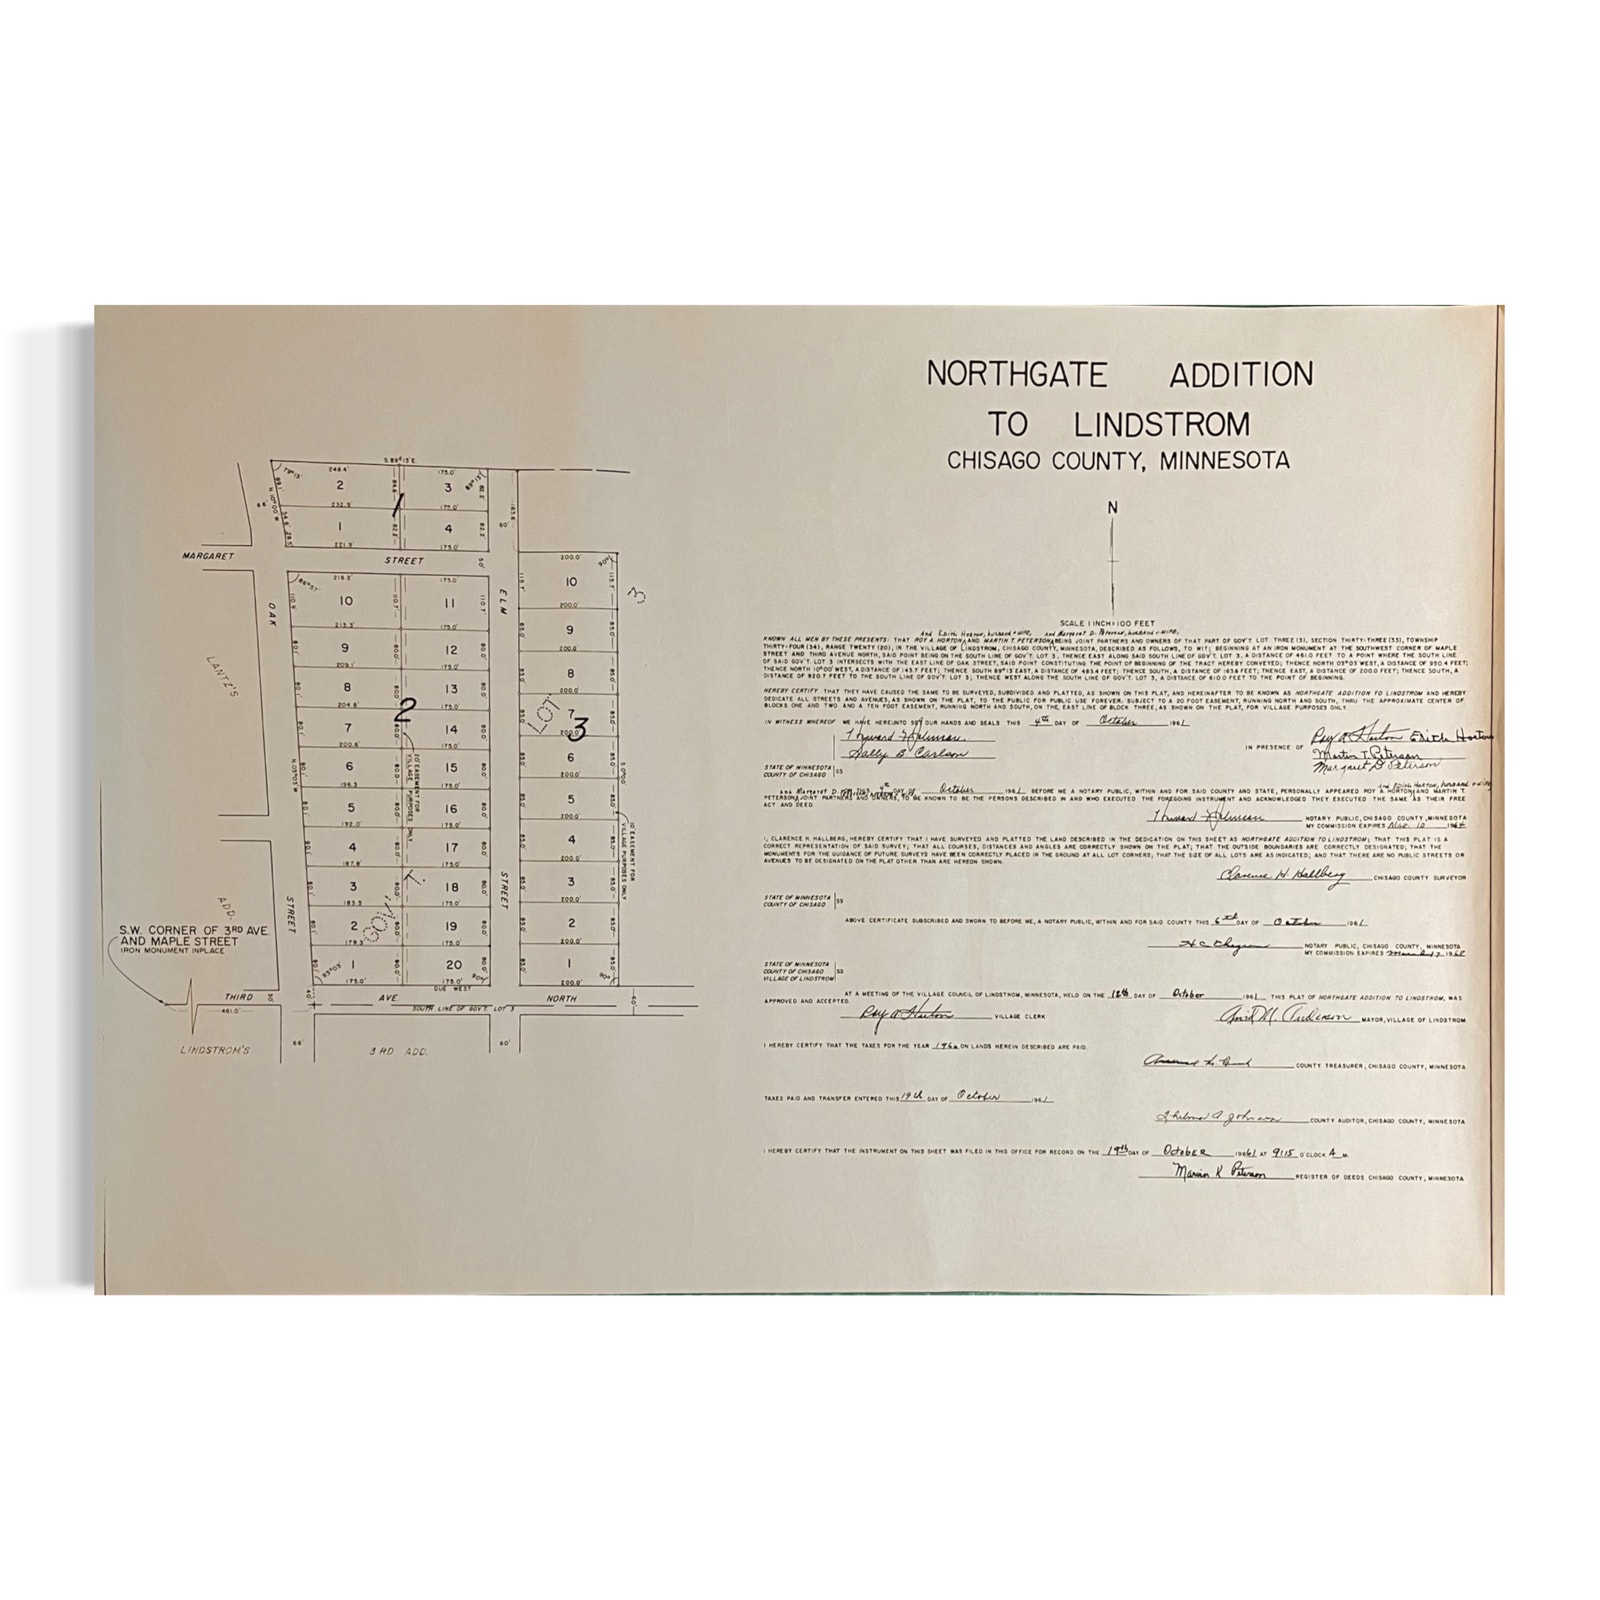 NORTHGATE ADDITION
TO LINDSTROM
CHISAGO COUNTY, MINNESOTA
N
SCALE 1 INCH = 100 FEET
and Edith Horton, husband + wife, and Margaret D. Peterson, husband + wife,
KNOWN ALL MEN BY THESE PRESENTS: THAT ROY A. HORTON, AND MARTIN T. PETERSON, BEING JOINT PARTNERS AND OWNERS OF THAT PART OF GOV'T. LOT THREE (3), SECTION THIRTY-THREE (33), TOWNSHIP
THIRTY-FOUR (34), RANGE TWENTY (20), IN THE VILLAGE OF LINDSTROM, CHISAGO COUNTY, MINNESOTA, DESCRIBED AS FOLLOWS, TO WIT; BEGINNING AT AN IRON MONUMENT AT THE SOUTHWEST CORNER OF MAPLE
STREET AND THIRD AVENUE NORTH, SAID POINT BEING ON THE SOUTH LINE OF GOV'T. LOT 3, THENCE EAST ALONG SAID SOUTH LINE OF GOV'T. LOT 3, A DISTANCE OF 461.0 FEET TO A POINT WHERE THE SOUTH LINE
OF SAID GOV'T. LOT 3 INTERSECTS WITH THE EAST LINE OF OAK STREET, SAID POINT CONSTITUTING THE POINT OF BEGINNING OF THE TRACT HEREBY CONVEYED; THENCE NORTH 03°03' WEST, A DISTANCE OF 930.4 FEET;
THENCE NORTH 10°00' WEST, A DISTANCE OF 143.7 FEET; THENCE SOUTH 89°13' EAST, A DISTANCE OF 483.4 FEET; THENCE SOUTH, A DISTANCE OF 163.6 FEET; THENCE EAST, A DISTANCE OF 200.0 FEET; THENCE SOUTH, A
DISTANCE OF 920.7 FEET TO THE SOUTH LINE OF GOV'T. LOT 3; THENCE WEST ALONG THE SOUTH LINE OF GOV'T. LOT 3, A DISTANCE OF 610.0 FEET TO THE POINT OF BEGINNING.
HEREBY CERTIFY THAT THEY HAVE CAUSED THE SAME TO BE SURVEYED, SUBDIVIDED AND PLATTED, AS SHOWN ON THIS PLAT, AND HEREINAFTER TO BE KNOWN AS NORTHGATE ADDITION TO LINDSTROM AND HEREBY
DEDICATE ALL STREETS AND AVENUES, AS SHOWN ON THE PLAT, TO THE PUBLIC FOR PUBLIC USE FOREVER. SUBJECT TO A 20 FOOT EASEMENT, RUNNING NORTH AND SOUTH, THRU THE APPROXIMATE CENTER OF
BLOCKS ONE AND TWO AND A TEN FOOT EASEMENT, RUNNING NORTH AND SOUTH, ON THE EAST LINE OF BLOCK THREE, AS SHOWN ON THE PLAT, FOR VILLAGE PURPOSES ONLY.
IN WITNESS WHEREOF WE HAVE HEREUNTO SET OUR HANDS AND SEALS THIS 4th DAY OF October 1961
Sally B Carlson
IN PRESENCE OF
Roy A Horton Edith Horton
Martin T. Peterson
Margaret D Peterson
STATE OF MINNESOTA
COUNTY OF CHISAGO SS
4th DAY OF October 1961 BEFORE ME A NOTARY PUBLIC, WITHIN AND FOR SAID COUNTY AND STATE, PERSONALLY APPEARED ROY A. HORTON, AND MARTIN T.
and Edith Horton, husband + wife,
and Margaret D.
PETERSON, JOINT PARTNERS AND OWNERS, TO BE KNOWN TO BE THE PERSONS DESCRIBED IN AND WHO EXECUTED THE FOREGOING INSTRUMENT AND ACKNOWLEDGED THEY EXECUTED THE SAME AS THEIR FREE
ACT AND DEED.
NOTARY PUBLIC, CHISAGO COUNTY, MINNESOTA
MY COMMISSION EXPIRES Mar. 12 1964
I, CLARENCE H. HALLBERG, HEREBY CERTIFY THAT I HAVE SURVEYED AND PLATTED THE LAND DESCRIBED IN THE DEDICATION ON THIS SHEET AS NORTHGATE ADDITION TO LINDSTROM; THAT THIS PLAT IS A
CORRECT REPRESENTATION OF SAID SURVEY; THAT ALL COURSES, DISTANCES AND ANGLES ARE CORRECTLY SHOWN ON THE PLAT; THAT THE OUTSIDE BOUNDARIES ARE CORRECTLY DESIGNATED; THAT THE
MONUMENTS FOR THE GUIDANCE OF FUTURE SURVEYS HAVE BEEN CORRECTLY PLACED IN THE GROUND AT ALL LOT CORNERS; THAT THE SIZE OF ALL LOTS ARE AS INDICATED; AND THAT THERE ARE NO PUBLIC STREETS OR
AVENUES TO BE DESIGNATED ON THE PLAT OTHER THAN ARE HEREON SHOWN.
Clarence H. Hallberg CHISAGO COUNTY SURVEYOR
STATE OF MINNESOTA
COUNTY OF CHISAGO SS
ABOVE CERTIFICATE SUBSCRIBED AND SWORN TO BEFORE ME, A NOTARY PUBLIC, WITHIN AND FOR SAID COUNTY THIS 6th DAY OF October 1961
NOTARY PUBLIC, CHISAGO COUNTY, MINNESOTA
MY COMMISSION EXPIRES
STATE OF MINNESOTA
COUNTY OF CHISAGO
VILLAGE OF LINDSTROM SS
AT A MEETING OF THE VILLAGE COUNCIL OF LINDSTROM, MINNESOTA, HELD ON THE 12th DAY OF October 1961 THIS PLAT OF NORTHGATE ADDITION TO LINDSTROM, WAS
APPROVED AND ACCEPTED.
Roy A Horton VILLAGE CLERK
MAYOR, VILLAGE OF LINDSTROM
I HEREBY CERTIFY THAT THE TAXES FOR THE YEAR 1960 ON LANDS HEREIN DESCRIBED ARE PAID.
COUNTY TREASURER, CHISAGO COUNTY, MINNESOTA
TAXES PAID AND TRANSFER ENTERED THIS 19th DAY OF October 1961
COUNTY AUDITOR, CHISAGO COUNTY, MINNESOTA
I HEREBY CERTIFY THAT THE INSTRUMENT ON THIS SHEET WAS FILED IN THIS OFFICE FOR RECORD ON THE 19th DAY OF October 1961 AT 9:15 O'CLOCK A M.
Marion K Peterson REGISTER OF DEEDS CHISAGO COUNTY, MINNESOTA
S 89°13' E
248.4' 175.0'
2 3
232.9' 175.0'
1
1 4
221.9' 175.0'
N 10°00' W
MARGARET STREET
219.2' 175.0'
10 11
213.3' 175.0'
9 12
209.1' 175.0'
8 13
204.8' 175.0'
2
7 14
200.6' 175.0'
6 15
196.3' 175.0'
5 16
192.0' 175.0'
4 17
187.8' 175.0'
3 18
183.5' 175.0'
2 19
179.3' 175.0'
1 20
175.0' 175.0'
DUE WEST
20' EASEMENT FOR
VILLAGE PURPOSES ONLY
OAK
STREET
N 03°03' W
ELM
STREET
163.6
60'
200.0'
10
200.0'
9
200.0'
8
200.0'
7
3
200.0'
6
200.0'
5
200.0'
4
200.0'
3
200.0'
2
200.0'
1
200.0'
S 0°00'
10' EASEMENT FOR
VILLAGE PURPOSES ONLY
GOV'T.
LOT
3
LANTZ'S
ADD.
S.W. CORNER OF 3RD AVE.
AND MAPLE STREET
IRON MONUMENT INPLACE
THIRD AVE. NORTH
461.0'
SOUTH LINE OF GOV'T. LOT 3
LINDSTROM'S 66' 3 RD ADD. 60'